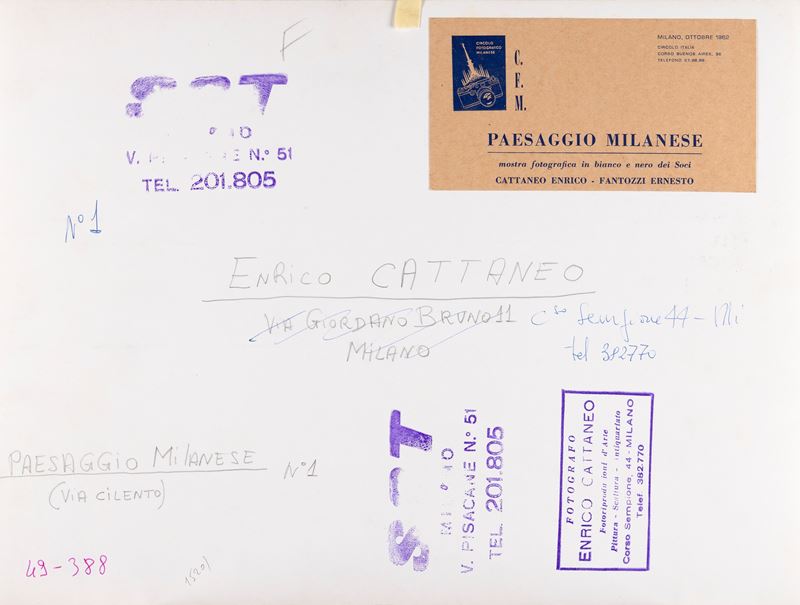 F
CIRCOLO
FOTOGRAFICO
MILANESE
C.
F.
M.
MILANO, OTTOBRE 1962
CIRCOLO ITALIA
CORSO BUENOS AIRES,
TELEFONO
PAESAGGIO MILANESE
mostra fotografica in bianco e nero dei Soci
CATTANEO ENRICO - FANTOZZI ERNESTO
V. N.° 51
TEL. 201.805
N° 1
ENRICO CATTANEO
VIA GIORDANO BRUNO 11 Cso Sempione 44 - Mi
MILANO tel 382770
PAESAGGIO MILANESE N° 1
(VIA CILENTO)
49-388
V. PISACANE N.° 51
TEL. 201.805
FOTOGRAFO
ENRICO CATTANEO
Fotoriproduzioni d'Arte
Pittura - Scultura - Antiquariato
Corso Sempione, 44 - MILANO
Telef. 382.770